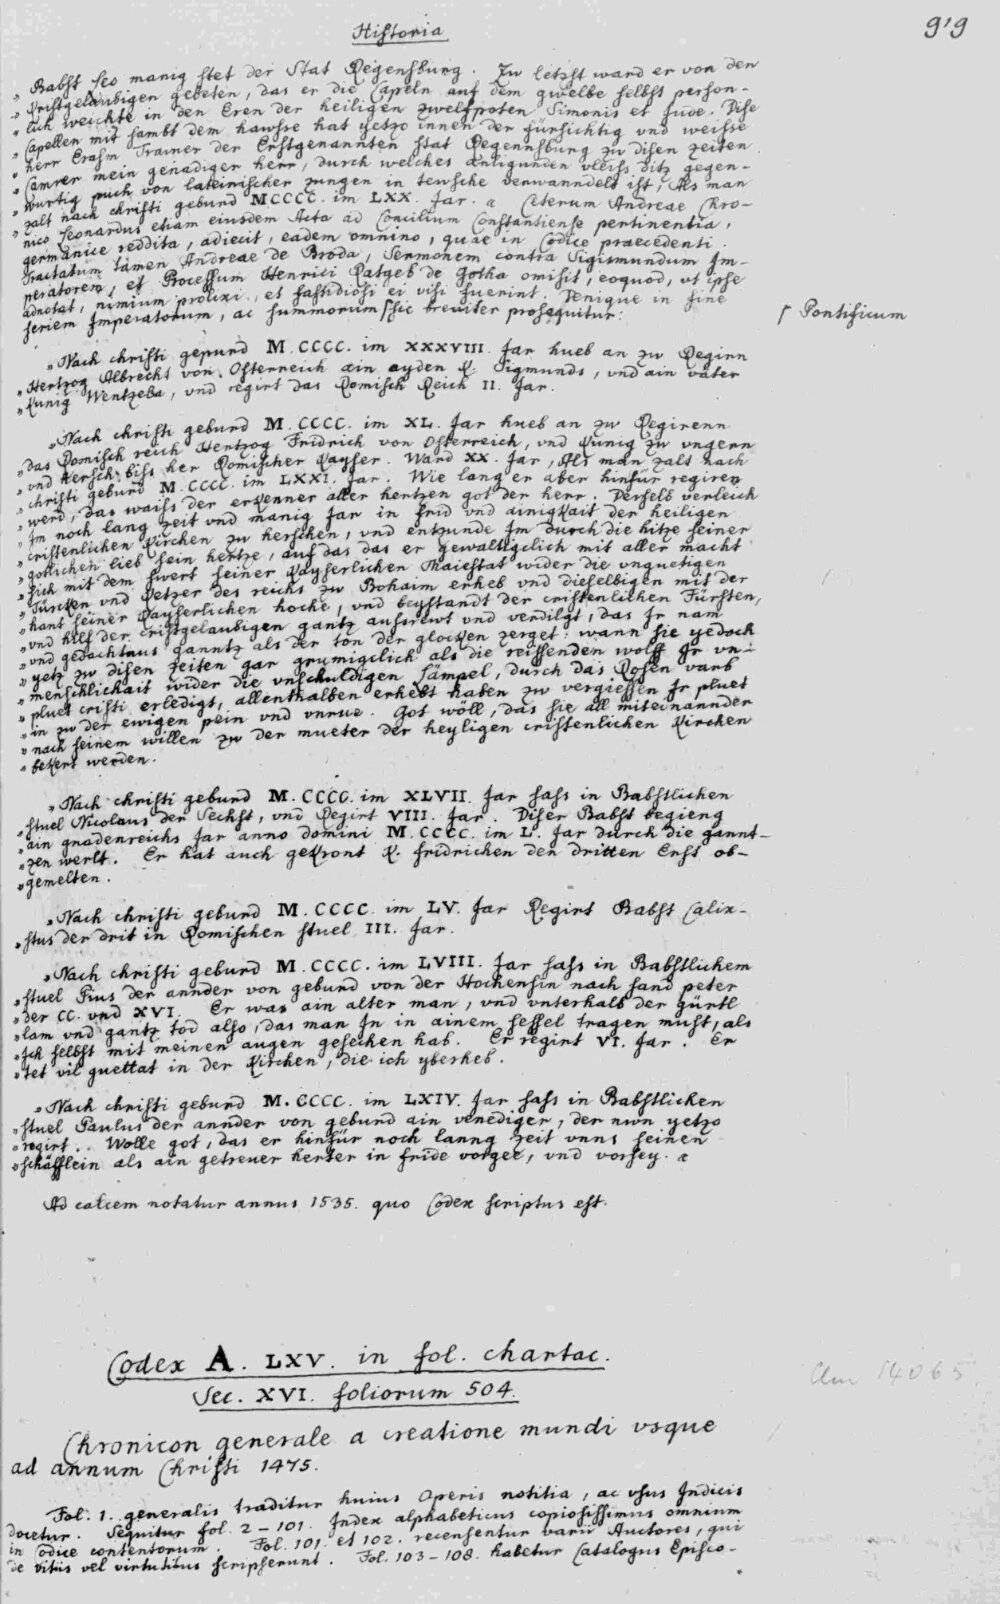 Historia
919
„ Babst Leo manig stet der Stat Regenspurg. Zu letzst ward er von den
„ Kristgelaubigen gebeten, das er die Capeln auf dem gwelbe selbst person-
„ lich weichte in den Eren der heiligen zwelfpoten Simonis et Jude. Dise
„ Capellen mit sambt dem hawsse hat yetzo innen der fürsichtig vnd weisse
„ herr Erasm Trainer der Erstgenannten stat Regennsburg zu disen zeiten
„ Camrer mein genadiger herr, durch welches anligunden vleiss ditz gegen-
„ wurtig puch von lateinischer zungen in tewsche verwanndelt ist, Als man
„ zalt nach christi geburd MCCCC. im LXX. Jar. Ceterum Andreae Chro-
nico Leonardus etiam eiusdem Acta ad Concilium Constantiense pertinentia,
germanice reddita, adiecit, eadem omnino, quae in Codice praecedenti.
Tractatum tamen Andreae de Broda, Sermonem contra Sigismundum Im-
peratorem, et Processum Henrici Ratgeb de Gotha omisit, eoquod, ut ipse
adnotat, nimium prolixi, et fastidiosi ei visi fuerint. Denique in fine
seriem Imperatorum, ac summorum ſ hic breviter prosequitur:
ſ Pontificum
„ Nach christi gepurd M.CCCC. im XXXVIII. Jar hueb an zu Regirn
„ Hertzog Albrecht von Osterreich ain ayden K. Sigmunds, vnd ain vater
„ Kunig Wentzela, vnd regirt das Romisch Reich II. Jar.
„ Nach christi geburd M.CCCC. im XL. Jar hueb an zu Regirenn
„ das Romisch reich Hertzog Fridrich von Osterreich, vnd Kunig zu vngern
„ vnd Hersch biss her Romischer Kayser. Ward XX. Jar, Als man zalt nach
„ christi geburd M.CCCC. im LXXI. Jar. Wie lang er aber hinfur regiren
„ werd, das waiss der erkenner aller hertzen got der herr. Derselb verleich
„ Im noch lang zeit vnd manig Jar in frid vnd ainigkait der heiligen
„ cristenlichen Kirchen zu herschen, vnd entzunde Im durch die hitze seiner
„ gotlichen lieb sein hertze, auf das das er gewaltigclich mit aller macht
„ sich mit dem swert seiner Kayserlichen Maiestat wider die vnguetigen
„ Türcken vnd Ketzer des reichs zu Bohaim erheb vnd dieselbigen mit der
„ hant seiner Kayserlichen hoche, vnd beystandt der cristenlichen Fürsten,
„ vnd hilf der cristgelaubigen gantz aussrewt vnd verdilgt, das Ir nam
„ vnd gedachtnus ganntz als der ton der glocken zerget: wann sie yedoch
„ yetz zu disen zeiten gar grymigclich als die reissenden wolff Ir vn-
„ menschlichait wider die vnschuldigen Lämpel, durch das Rosen varb
„ pluet cristi erledigt, allenthalben erhebt haben zu vergiessen Ir pluet
„ in zu der ewigen pein vnd vnrue. Got wöll, das sie all miteinannder
„ nach seinem willen zu der mueter der heyligen cristenlichen Kirchen
„ bekert werden.
„ Nach christi geburd M.CCCC. im XLVII. Jar sass in Babstlichen
„ stuel Nicolaus der Sechst, vnd Regirt VIII. Jar. Diser Babst begieng
„ ain gnadenreichs Jar anno domini M.CCCC. im L. Jar durch die gannt-
„ zen werlt. Er hat auch gekront K. fridrichen den dritten Erst ob-
„ gemelten.
„ Nach christi geburd M.CCCC. im LV. Jar Regirt Babst Calix-
„ stus der drit in Romischen stuel III. Jar.
„ Nach christi geburd M.CCCC. im LVIII. Jar sass in Babstlichem
„ stuel Pius der annder von geburd von der Hochensin nach sand peter
„ der CC. vnd XVI. Er was ain alter man, vnd vnterhalb der gürtl
„ lam vnd gantz tod also, das man In in ainem sessel tragen must, als
„ Ich selbst mit meinen augen gesechen hab. Er regirt VI. Jar. Er
„ tet vil guettat in der Kirchen, die ich yberheb.
„ Nach christi geburd M.CCCC. im LXIV. Jar sass in Babstlichen
„ stuel Paulus der annder von geburd ain venediger, der nun yetzo
„ regirt. Wolle got, das er hinfür noch lanng zeit vnns seinen
„ schäfflein als ain getreuer herter in fride vorgee, vnd vorsey.
Ad calcem notatur annus 1535. quo Codex scriptus est.
Codex A. LXV. in fol. chartac.
Sec. XVI. foliorum 504.
Clm 14065
Chronicon generale a creatione mundi vsque
ad annum Christi 1475.
Fol. 1. generalis traditur huius Operis notitia, ac vsus Indicis
docetur. Sequitur fol. 2-101. Index alphabeticus copiosissimus omnium
in Codice contentorum. Fol. 101. et 102. recensentur varii Auctores, qui
de vitiis vel virtutibus scripserunt. Fol. 103-108. habetur Catalogus Episco-